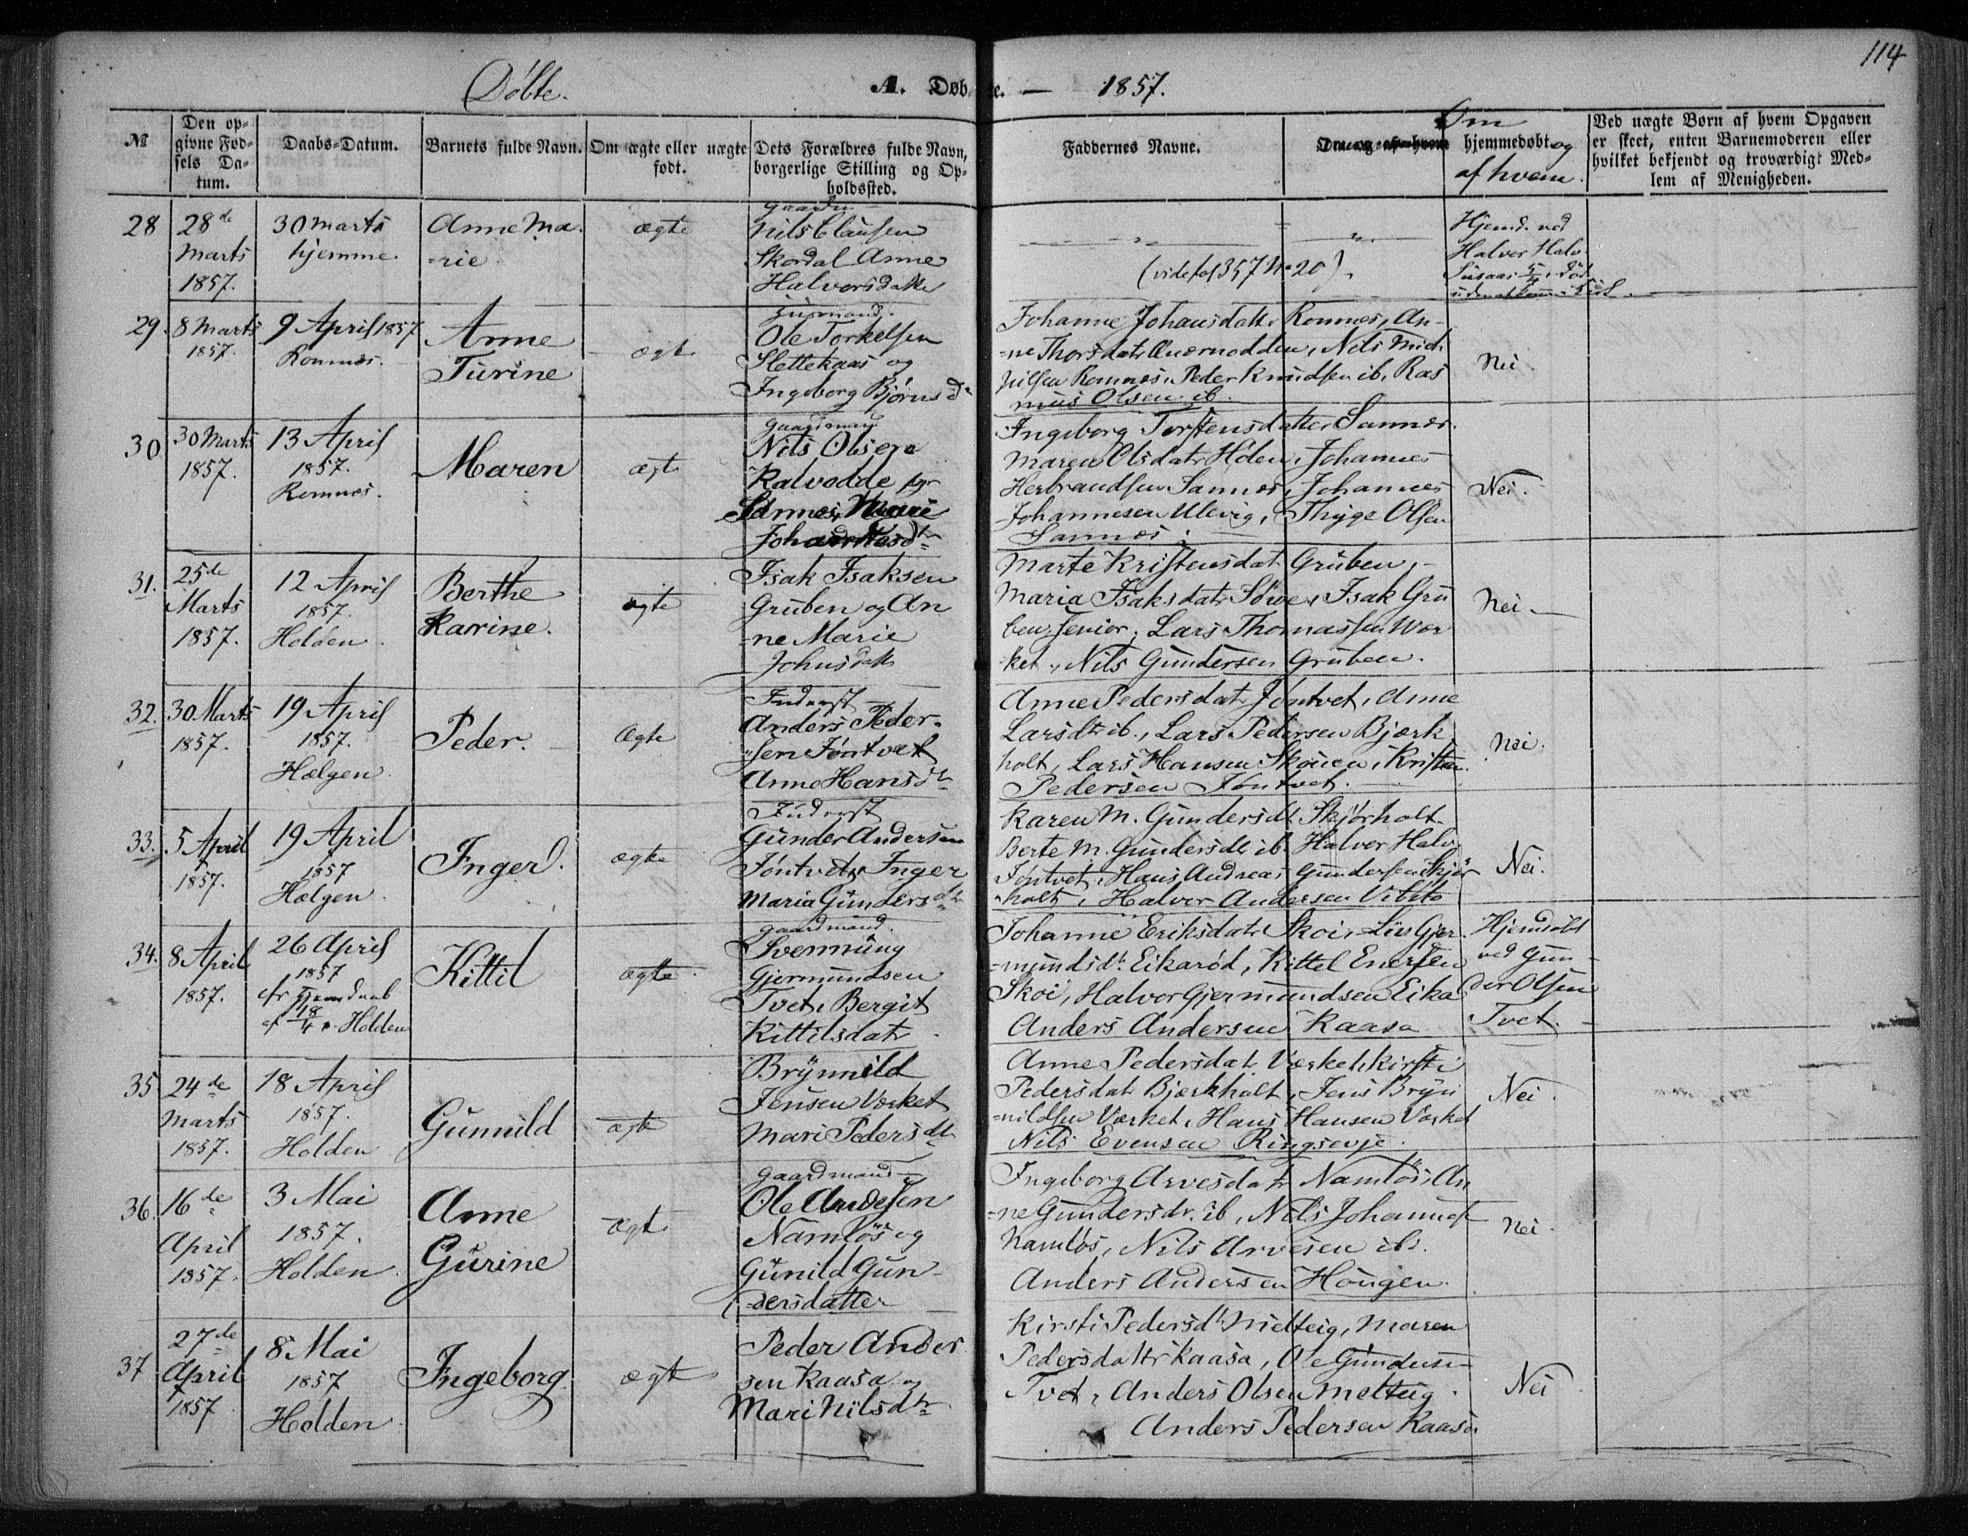 114
Døbte.
A. Døbte. — 1857.
№
Den opgivne Fødsels Datum.
Daabs-Datum.
Barnets fulde Navn.
Om ægte eller uægte født.
Dets Forældres fulde Navn, borgerlige Stilling og Opholdssted.
Faddernes Navne.
Om hjemmedøbt og af hvem.
Ved uægte Børn af hvem Opgaven er skeet, enten Barnemoderen eller hvilket bekjendt og troværdigt Medlem af Menigheden.
28
28de
Marts
1857.
30 Marts
hjemme.
Anne Ma-
-rie.
ægte
Nils Clausen
Skordal Anne
Halvorsdatter
(vide fol 357 No 20).
Hjemd. ved
Halver Halv.
29.
8 Marts
1857.
9 April 1857
Romnæs.
Anne
Turine
ægte
Ole Torkelsen
Slettekaas og
Ingeborg Bjørnsd.
Johanne Johansdatr Romnæs, An-
-ne Thorsdatr Qværnodden, Nils
Nilsen Romnæs, Peder Knudsen ib, Ras
mus Olsen ib.
Nei.
30
30 Marts
1857.
13 April
1857.
Romnæs.
Maren
ægte
Gaardmand
Nils Olsen
Kalvodde
Sannes, Marie
Ingeborg Torstensdatter Sannæs.
Maren Olsdatr Holen, Johannes
Herbrandsen Sannæs, Johannes
Johannesen Ulevig, Thyge Olsen
Sannæs.
Nei.
31.
25de
Marts
1857.
12 April
1857.
Holden.
Berthe
Karine.
ægte
Isak Isaksen
Gruben og An
-ne Marie
Johnsdatr
Marte Kristensdat Gruben,
Maria Isaksdatr Søve, Isak Gru
ben Senior, Lars Thomassen Vær
ket, Nils Gundersen Gruben.
Nei.
32.
30. Marts
1857.
19 April
1857.
Hælgen.
Peder.
Ægte
Inderst
Anders Peder-
sen Jøntvet
Anne Hansdtr
Anne Pedersdatr Jøntvet, Anne
Larsdtr ib., Lars Pedersen Bjærk
holt, Lars Hansen Skouen, Kristen
Pedersen Jøntvet.
Nei.
33.
5 April
1857.
19 April
1857
Hælgen.
Inger.
ægte
Inderst
Gunder Andersen
Jøntvet, Inger
Maria Gundersdtr
Karen M. Gundersdt Skjørholt
Berte M. Gundersdt ib. Halvor Halv.
Jøntvet, Hans Andreas Gundersen Skjør
holt, Halvor Andersen Vibito
Nei.
34.
8 April
1857.
26 April
1857
cfr Hjemmdaab
af 18/4. Holden
Kittil
ægte.
Gaardmand.
Svennung
Gjermundsen
Tvet, Bergit
Kittilsdatr
Johanne Eriksdatr Skoi, Liv Gjer-
-mundsdt. Eikarød, Kittel Enersen
Skoi, Halvor Gjermundsen Eika
Anders Andersen Kaasa
Hjemdøbt
ved Gun-
der Olsen
Tvet.
35
24de
Marts
1857.
18 April
1857.
Holden
Gunnild
ægte
Brynnild
Jensen Værket
Mari Pedersdtr
Anne Pedersdat. Værket, Kirsti
Pedersdat Bjærkholt, Jens Bryn
-nildsen Værket, Hans Hansen Værket
Nils Evensen Ringsevje.
Nei.
36.
16de
April
1857.
3 Mai
1857.
Holden.
Anne
Gurine
ægte
Gaardmand
Ole Andersen
Namløs og
Gunild Gun-
-dersdatter
Ingeborg Arvesdatr Namløs, An
-ne Gundersdr. ib, Nils Johannes
Namløs, Nils Arvesen ibi.
Anders Andersen Hougen.
Nei.
37
27de
April
1857
8 Mai
1857
Holden
Ingeborg
ægte
Peder Anders
sen Kaasa og
Mari Nilsdtr
Kirsti Pedersdt Melteig, Maren
Pedersdatter Kaasa, Ole Gundersen
Tvet, Anders Olsen Melteig.
Anders Pedersen Kaasa.
Nei